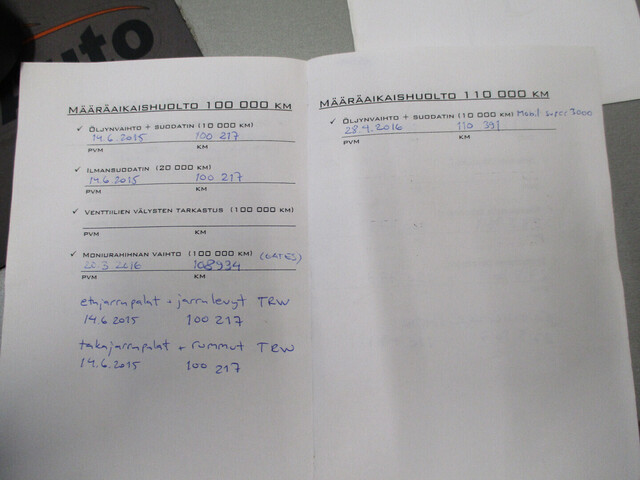 auto
MÄÄRÄAIKAISHUOLTO 100 000 KM
✓ ÖLJYNVAIHTO + SUODATIN (10 000 KM)
14.6.2015 100 217
PVM KM
✓ ILMANSUODATIN (20 000 KM)
14.6.2015 100 217
PVM KM
✓ VENTTIILIEN VÄLYSTEN TARKASTUS (100 000 KM)
PVM KM
✓ MONIURAHIHNAN VAIHTO (100 000 KM) (GATES)
20.3.2016 108934
PVM KM
etujarrupalat + jarrulevyt TRW
14.6.2015 100 217
takajarrupalat + rummut TRW
14.6.2015 100 217
MÄÄRÄAIKAISHUOLTO 110 000 KM
✓ ÖLJYNVAIHTO + SUODATIN (10 000 KM) Mobil super 3000
28.4.2016 110 391
PVM KM